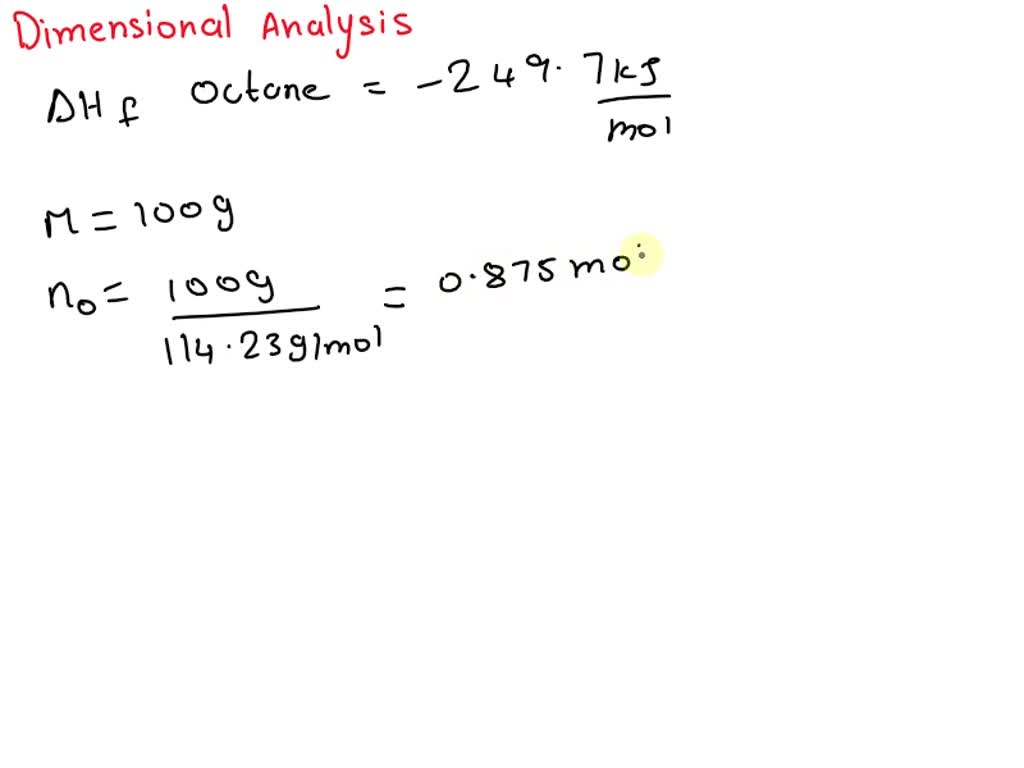 Dimensional Analysis
ΔHf Octane = -249.7 kJ/mol
M = 100g
no = 100g / 114.23g/mol = 0.875 mo